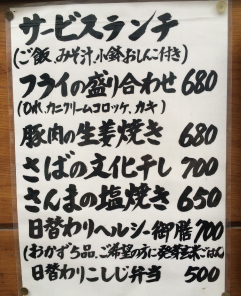 サービスランチ
(ご飯、みそ汁、小鉢、おしんこ付き)
フライの盛り合わせ 680
(ひれ、カニクリームコロッケ、カキ)
豚肉の生姜焼き 680
さばの文化干し 700
さんまの塩焼き 650
日替わりヘルシー御膳 700
(おかず5品、ご希望の方に発芽玄米ごはん)
日替わりこしじ弁当 500